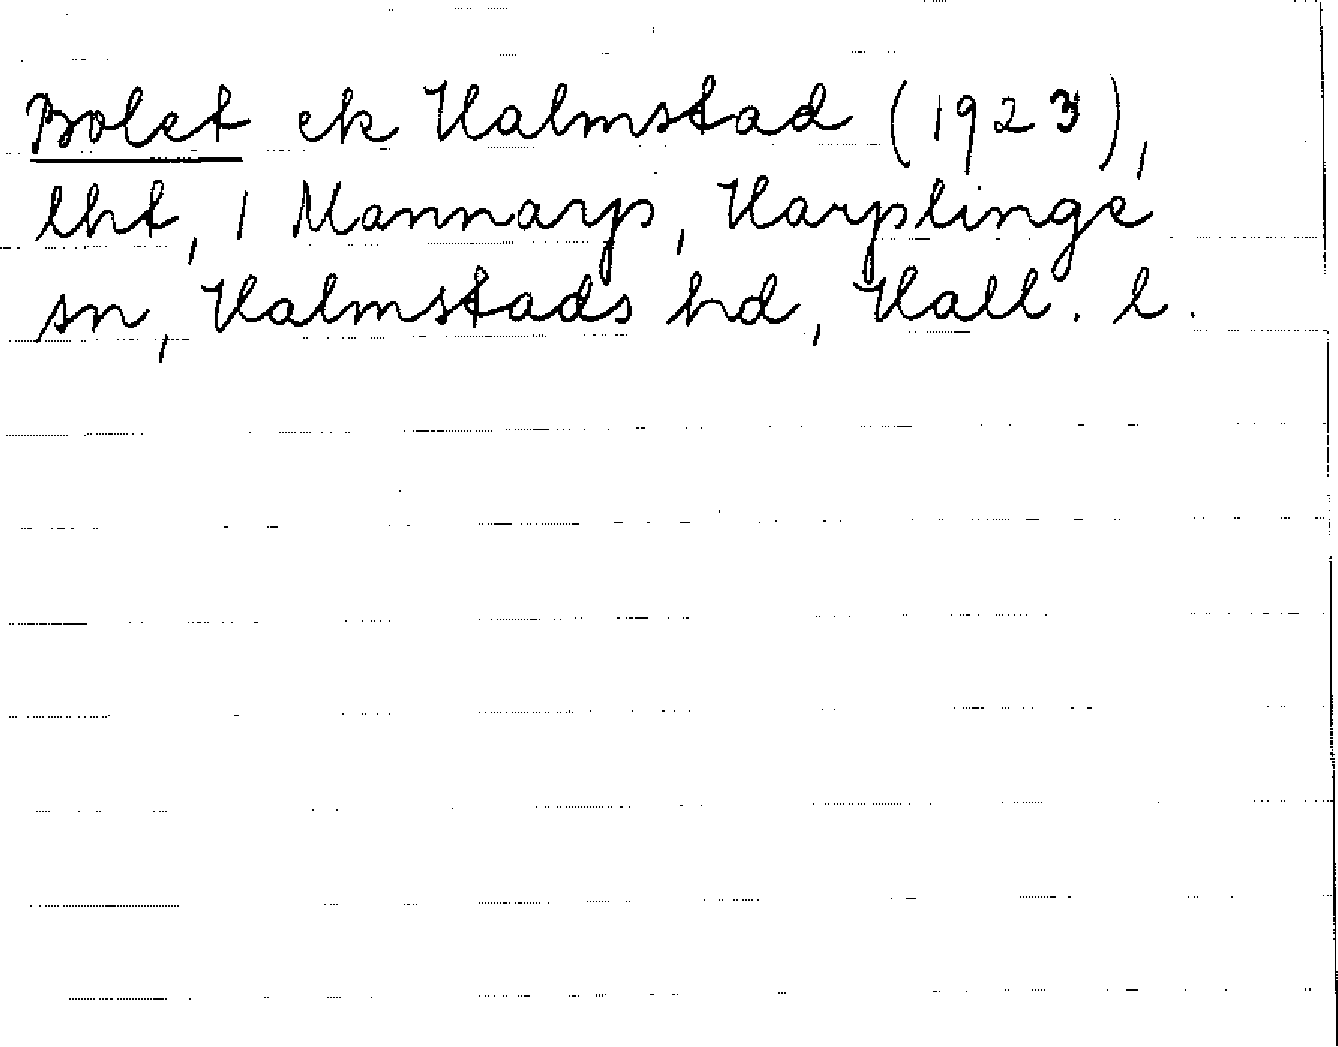 Bolet ek Halmstad (1923),
lht, 1 Mannarp, Harplinge
sn, Halmstads hd, Hall. l.